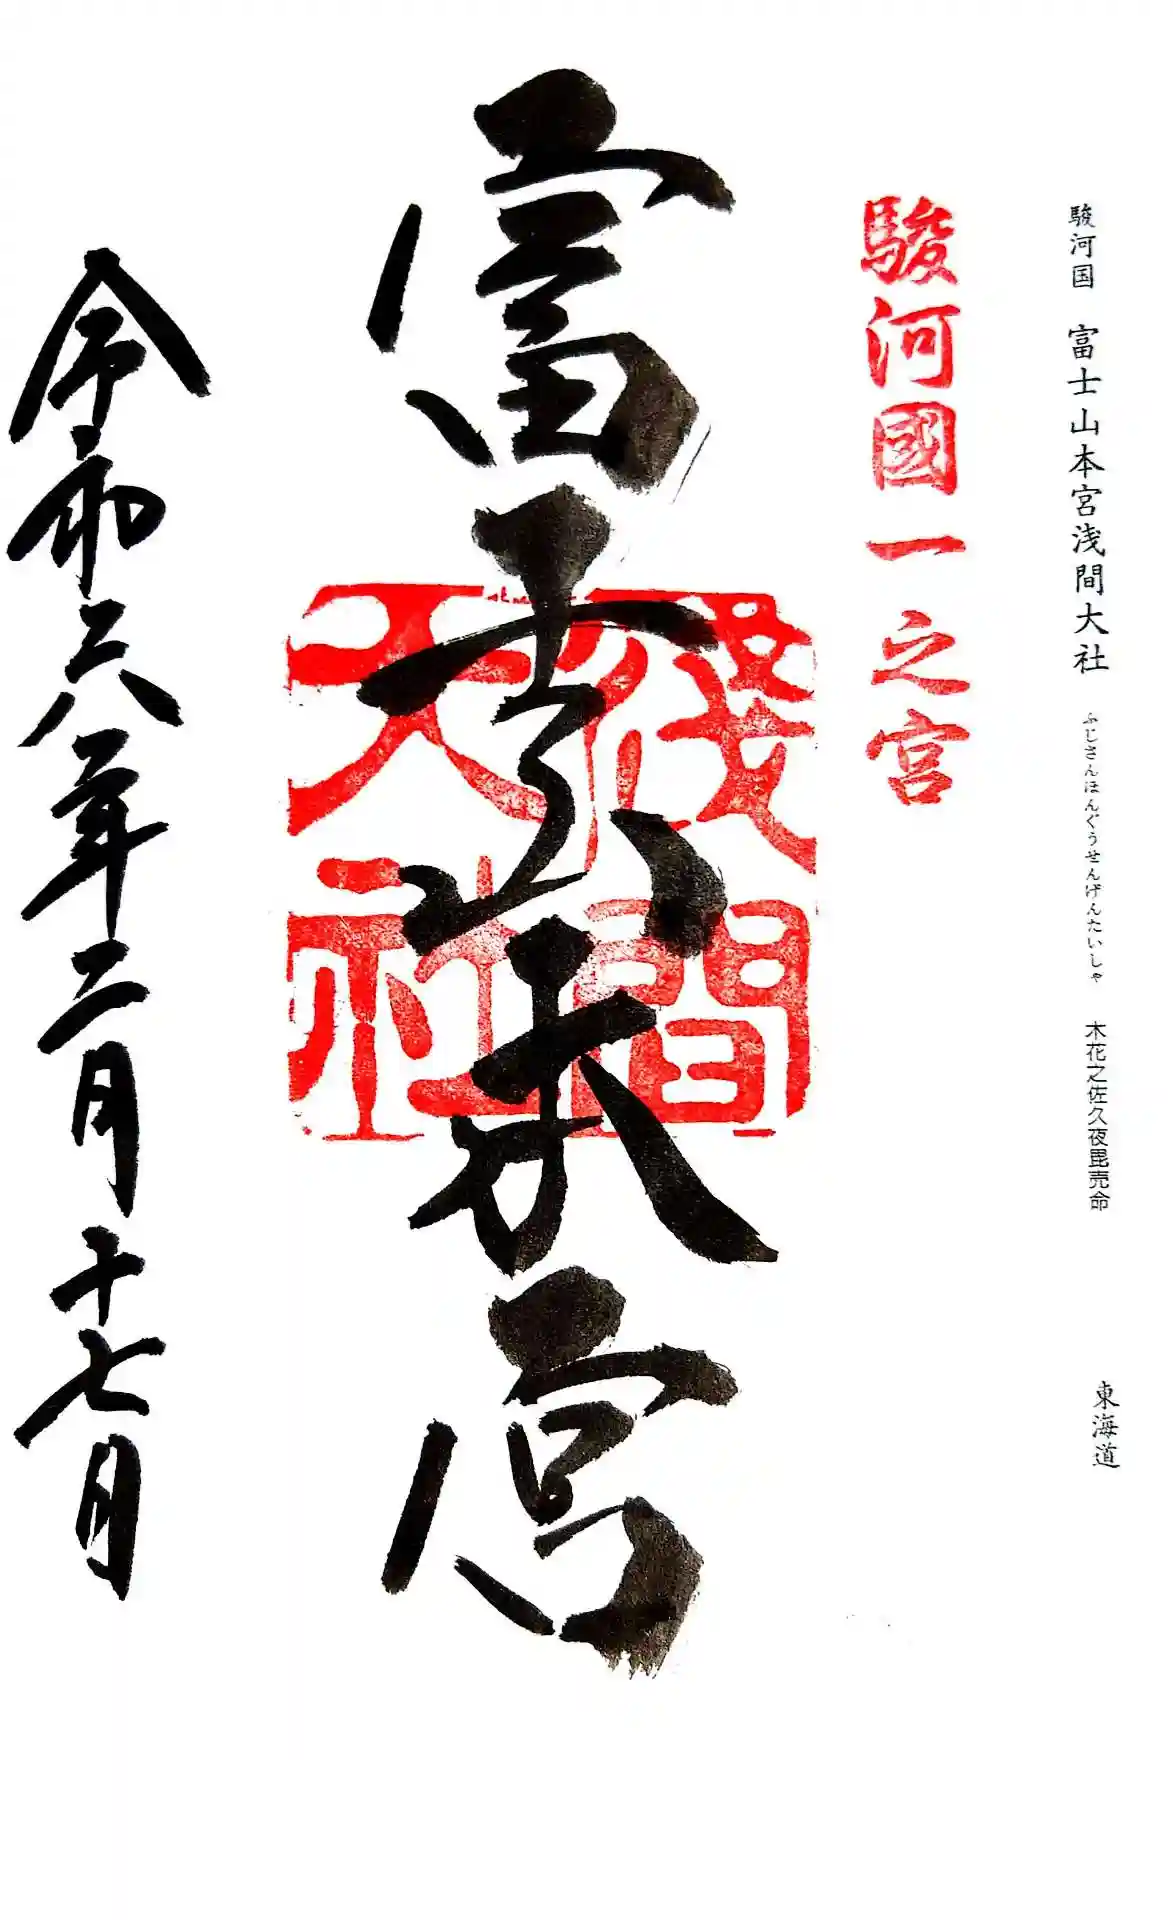 駿河国 富士山本宮浅間大社 ふじさんほんぐうせんげんたいしゃ 木花之佐久夜毘売命 東海道
駿河國一之宮
富士山本宮
淺間
大社
令和六年二月十七日